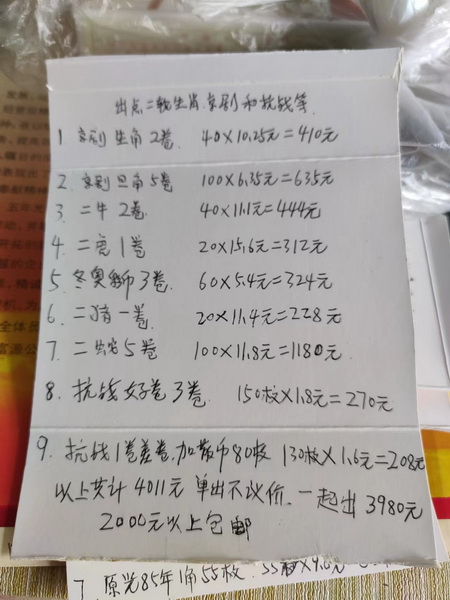 出点二轮生肖.京剧和抗战等.
1 京剧生角2卷 40×10.25元=410元
2. 京剧旦角5卷 100×6.35元=635元
3. 二牛2卷 40×11.1元=444元
4. 二虎1卷 20×15.6元=312元
5. 冬奥币3卷 60×5.4元=324元
6. 二猪一卷 20×11.4元=228元
7. 二蛇5卷 100×11.8元=1180元
8. 抗战好卷3卷 150枚×1.8元=270元
9. 抗战1卷差卷.加散币80枚 130枚×1.6元=208元
以上共计4011元 单出不议价.一起出3980元
2000元以上包邮
7. 原光85年1角55枚.
全体员